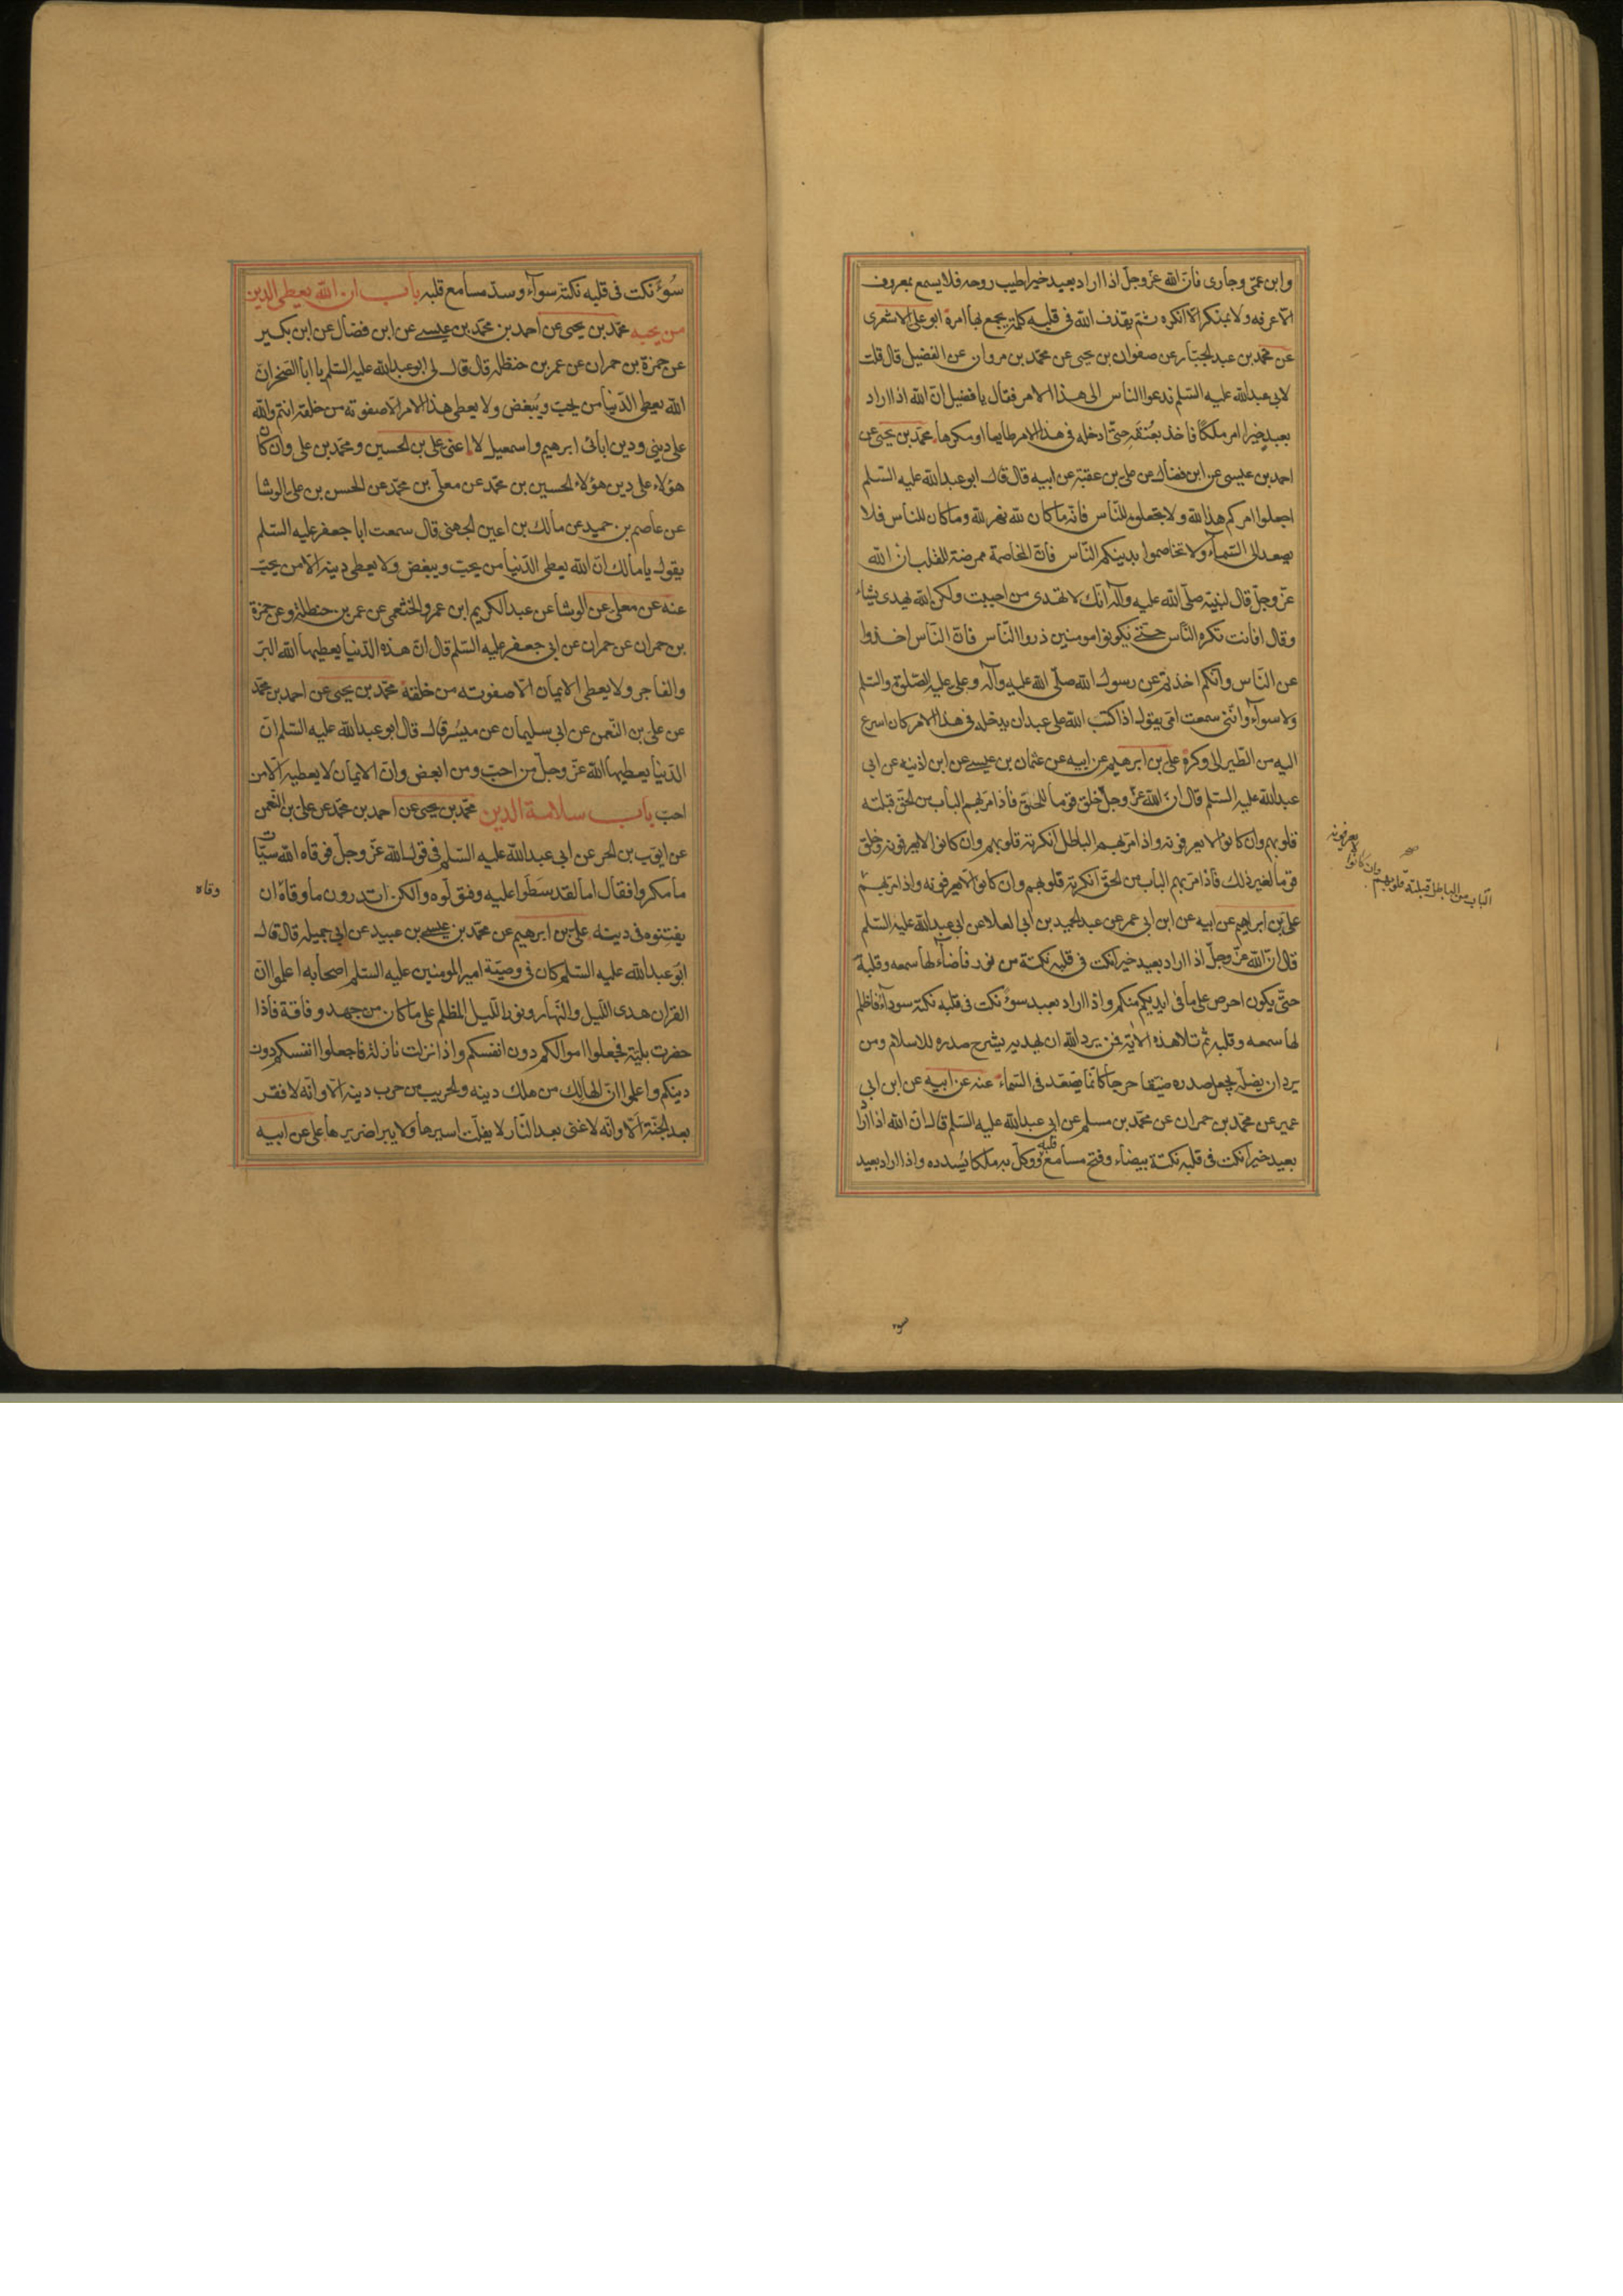 وابن عمّى وجارى فانّ الله عزّ وجلّ اذا اراد بعبد خيرا طيب روحه فلا يسمع بمعروف
الّا عرفه ولا بمنكر الّا انكره ثمّ يقذف الله فى قلبه كلمة يجمع بها امره ابو على الاشعرى
عن محمّد بن عبد الجبّار عن صفوان بن يحيى عن محمّد بن مروان عن الفضيل قال قلت
لابى عبد الله عليه السّلم ندعوا النّاس الى هذا الامر فقال يا فضيل انّ الله اذا اراد
بعبد خيرا امر ملكًا فاخذ بعُنقه حتّى ادخله فى هذا الامر طايعا او مكرها محمّد بن يحيى عن
احمد بن عيسى عن ابن فضال عن على بن عقبة عن ابيه قال قال ابو عبد الله عليه السّلم
اجعلوا امركم هذا لله ولا تجعلوه للنّاس فانّه ما كان لله فهو لله وما كان للناس فلا
يصعد الى السّماء ولا تخاصموا بدينكم النّاس فانّ المخاصمة ممرضة للقلب انّ الله
عزّ وجلّ قال لنبيّه صلّى الله عليه وآله انّك لا تهدى من احببت ولكن الله يهدى من يشاء
وقال افانت تكره النّاس حتّى يكونوا مومنين ذروا النّاس فانّ النّاس اخذوا
عن النّاس وانّكم اخذتم عن رسول الله صلّى الله عليه وآله وعلى عليه الصّلوة والسّلم
ولا سواء وانّنى سمعت ابى يقول اذا كتب الله على عبد ان يدخله فى هذا الامر كان اسرع
اليه من الطّير الى وكره على بن ابرهيم عن ابيه عن عثمان بن عيسى عن ابن اذينه عن ابى
عبد الله عليه السّلم قال انّ الله عزّ وجلّ خلق قوما للحقّ فاذا مرّ بهم الباب من الحقّ قبلته
قلوبهم وان كانوا لا يعرفونه واذا مرّ بهم الباطل انكرته قلوبهم وان كانوا لا يعرفونه وخلق
قوما لغير ذلك فاذا مرّ بهم الباب من الحقّ انكرته قلوبهم وان كانوا لا يعرفونه واذا مرّ بهم
على بن ابراهيم عن ابيه عن ابن ابى عمر عن عبد الحميد بن ابى العلا عن ابى عبد الله عليه السّلم
قال انّ الله عزّ وجلّ اذا اراد بعبد خيرا نكت فى قلبه نكتة من نور فاضاء لها سمعه وقلبه
حتّى يكون احرص على ما فى ايديكم منكم واذا اراد بعبد سوء نكت فى قلبه نكتة سوداء فاظلم
لها سمعه وقلبه ثمّ تلا هذه الاية فمن يرد الله ان يهديه يشرح صدره للاسلام ومن
يرد ان يضلّه يجعل صدره ضيّقا حرجا كانّما يصّعّد فى السّماء عنه عن ابيه عن ابن ابى
عمير عن محمّد بن حمران عن محمّد بن مسلم عن ابى عبد الله عليه السّلم قال انّ الله اذا اراد
بعبد خيرا نكت فى قلبه نكتة بيضاء وفتح مسامع قلبه ووكّل به ملكا يُسدده واذا اراد بعبد
لا يعرفونه
صح
وان كانوا
الباب من الباطل قبلته قلوبهم
سوء
سُوء نكت فى قلبه نكتة سوآء وسدّ مسامع قلبه باب ان الله يعطى الدين
من يحبه محمّد بن يحيى عن احمد بن محمّد بن عيسى عن ابن فضال عن ابن بكير
عن حمزة بن حمران عن عمر بن حنظله قال قال لى ابو عبد الله عليه السّلم يا ابا الصّخر انّ
الله يعطى الدّنيا من يحبّ ويُبغض ولا يعطى هذا الامر الّا صفوته من خلقه انتم والله
على دينى ودين ابائى ابرهيم واسمعيل لا اعنى على بن الحسين ومحمّد بن على وان كان
هؤلاء على دين هؤلاء الحسين بن محمّد عن معلّى بن محمّد عن الحسن بن على الوشا
عن عاصم بن حميد عن مالك بن اعين الجهنى قال سمعت ابا جعفر عليه السّلم
يقول يا مالك انّ الله يعطى الدّنيا من يحبّ ويبغض ولا يعطى دينه الّا من يحبّ
عنه عن معلّى عن الوشا عن عبد الكريم ابن عمرو الخثعمى عن عمر بن حنظلة وعن حمزة
بن حمران عن حمران عن ابى جعفر عليه السّلم قال انّ هذه الدّنيا يعطيها الله البرّ
والفاجر ولا يعطى الايمان الّا صفوته من خلقه محمّد بن يحيى عن احمد بن محمّد
عن على بن النّعمن عن ابى سليمان عن ميسّر قال قال ابو عبد الله عليه السّلم انّ
الدّنيا يعطيها الله عزّ وجلّ من احبّ ومن ابغض وانّ الايمان لا يعطيه الّا من
احبّ باب سلامة الدين محمّد بن يحيى عن احمد بن محمّد عن على بن النّعمن
عن ايّوب بن الحر عن ابى عبد الله عليه السّلم فى قول الله عزّ وجلّ فوقاه الله سيّئات
ما مكروا فقال اما لقد سَطَوا عليه وقتلوه ولكن اتدرون ما وقاهُ ان
وقاه
يفتنوه فى دينه على بن ابرهيم عن محمّد بن عيسى بن عبيد عن ابى جميله قال قال
ابو عبد الله عليه السّلم كان فى وصيّة امير المومنين عليه السّلم اصحابه اعلموا انّ
القران هدى اللّيل والنّهار ونور اللّيل المظلم على ما كان من جهد وفاقة فاذا
حضرت بليّة فجعلوا اموالكم دون انفسكم واذا نزلت نازلة فاجعلوا انفسكم دون
دينكم واعلموا انّ الهالك من هلك دينه والحريب من حرب دينه الا وانّه لا فقر
بعد الجنّة الا وانّه لا غنى بعد النّار لا يفكّ اسيرها ولا يبرا ضريرها على عن ابيه